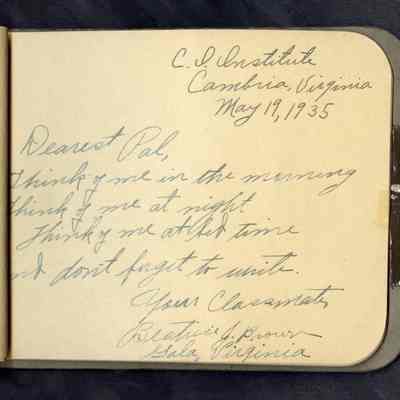 C. I. Institute
Cambria, Virginia
May 19, 1935
Dearest Pal,
Think of me in the morning
Think of me at night
Think of me at bed time
and don't forget to write.
Your Classmate,
Beatrice J. Brown
Gala, Virginia